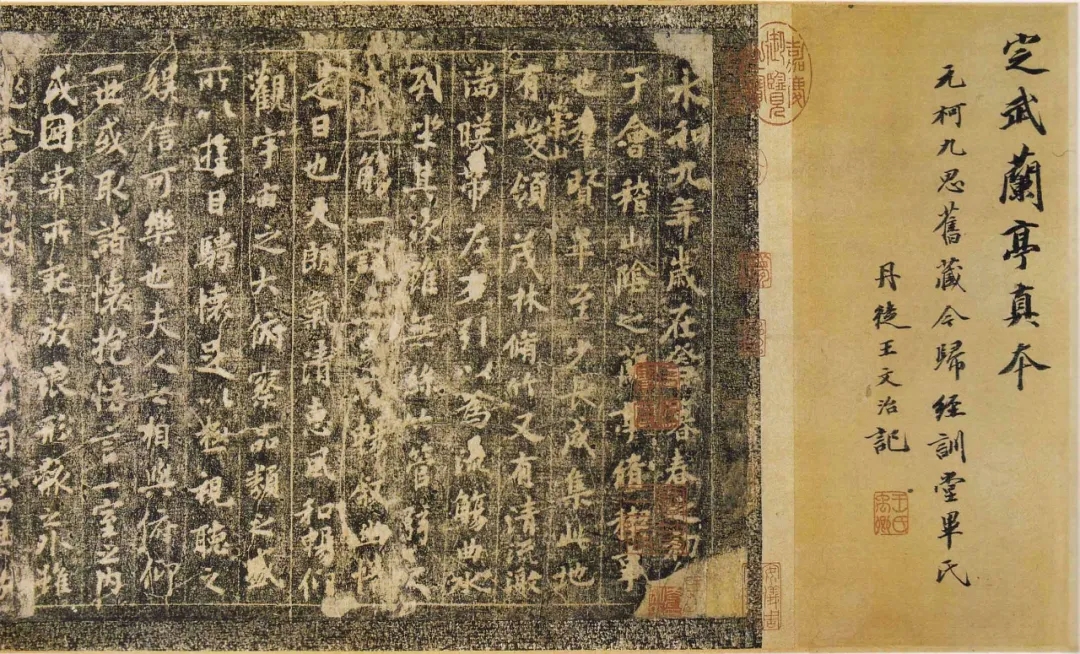 定武蘭亭真本
元柯九思舊藏今歸經訓堂畢氏
丹徒王文治記
永和九年歲在癸暮春之初
于會稽山陰之蘭亭脩禊事
也群賢畢至少長咸集此地
有峻領茂林脩竹又有清流激
湍暎帶左右引以為流觴曲水
列坐其次雖無絲竹管弦之
盛一觴一詠亦以暢叙幽情
是日也天朗氣清惠風和暢仰
觀宇宙之大俯察品類之盛
所以遊目騁懷足以極視聽之
娛信可樂也夫人之相與俯仰
一世或取諸懷抱悟言一室之內
或因寄所託放浪形骸之外雖
趣舍萬殊靜